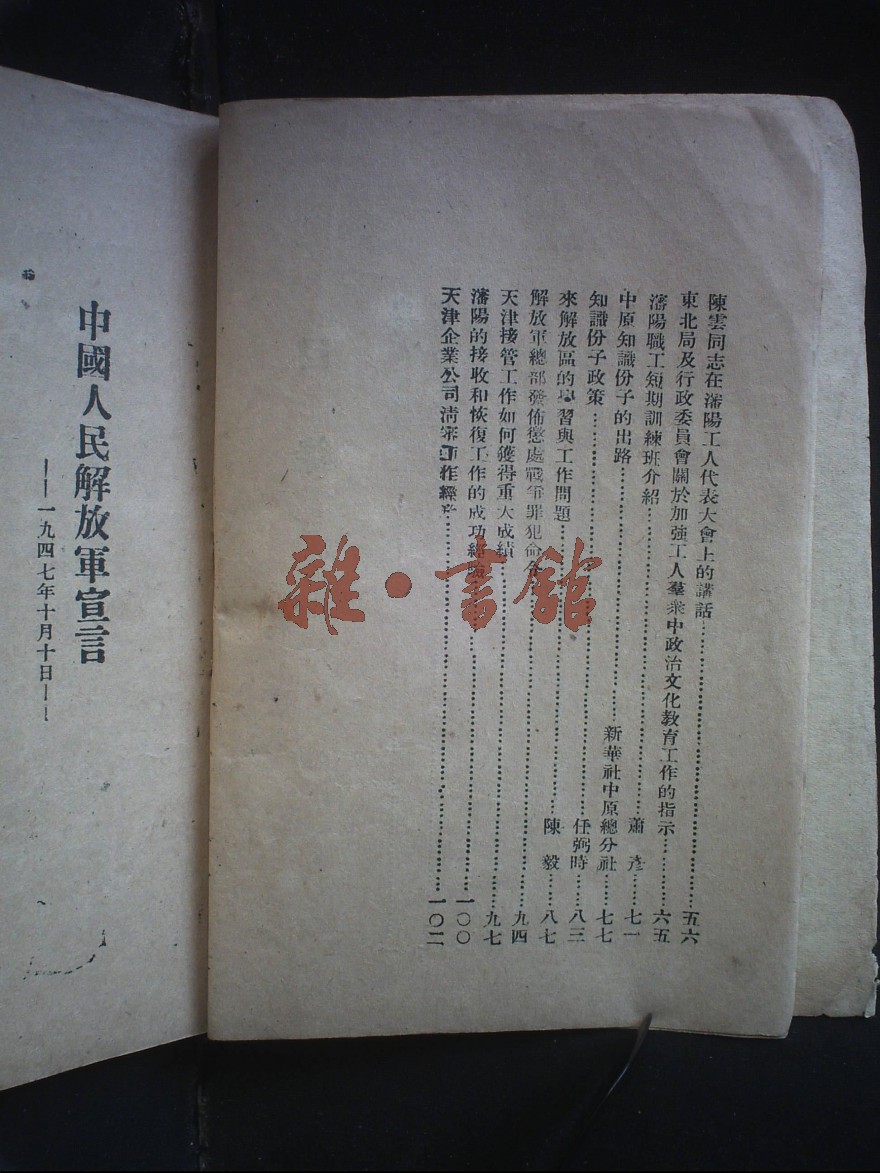 陳雲同志在瀋陽工人代表大會上的講話……五六
東北局及行政委員會關於加強工人羣衆中政治文化教育工作的指示……六五
瀋陽職工短期訓練班介紹……蕭 彥……七一
中原知識份子的出路……新華社中原總分社……七七
知識份子政策……任弼時……八三
來解放區的學習與工作問題……陳 毅……八七
解放軍總部發佈懲處戰爭罪犯命令……九四
天津接管工作如何獲得重大成績……九七
瀋陽的接收和恢復工作的成功經驗……一〇〇
天津企業公司清 工作經……一〇二
中國人民解放軍宣言
——一九四七年十月十日——
雜·書館